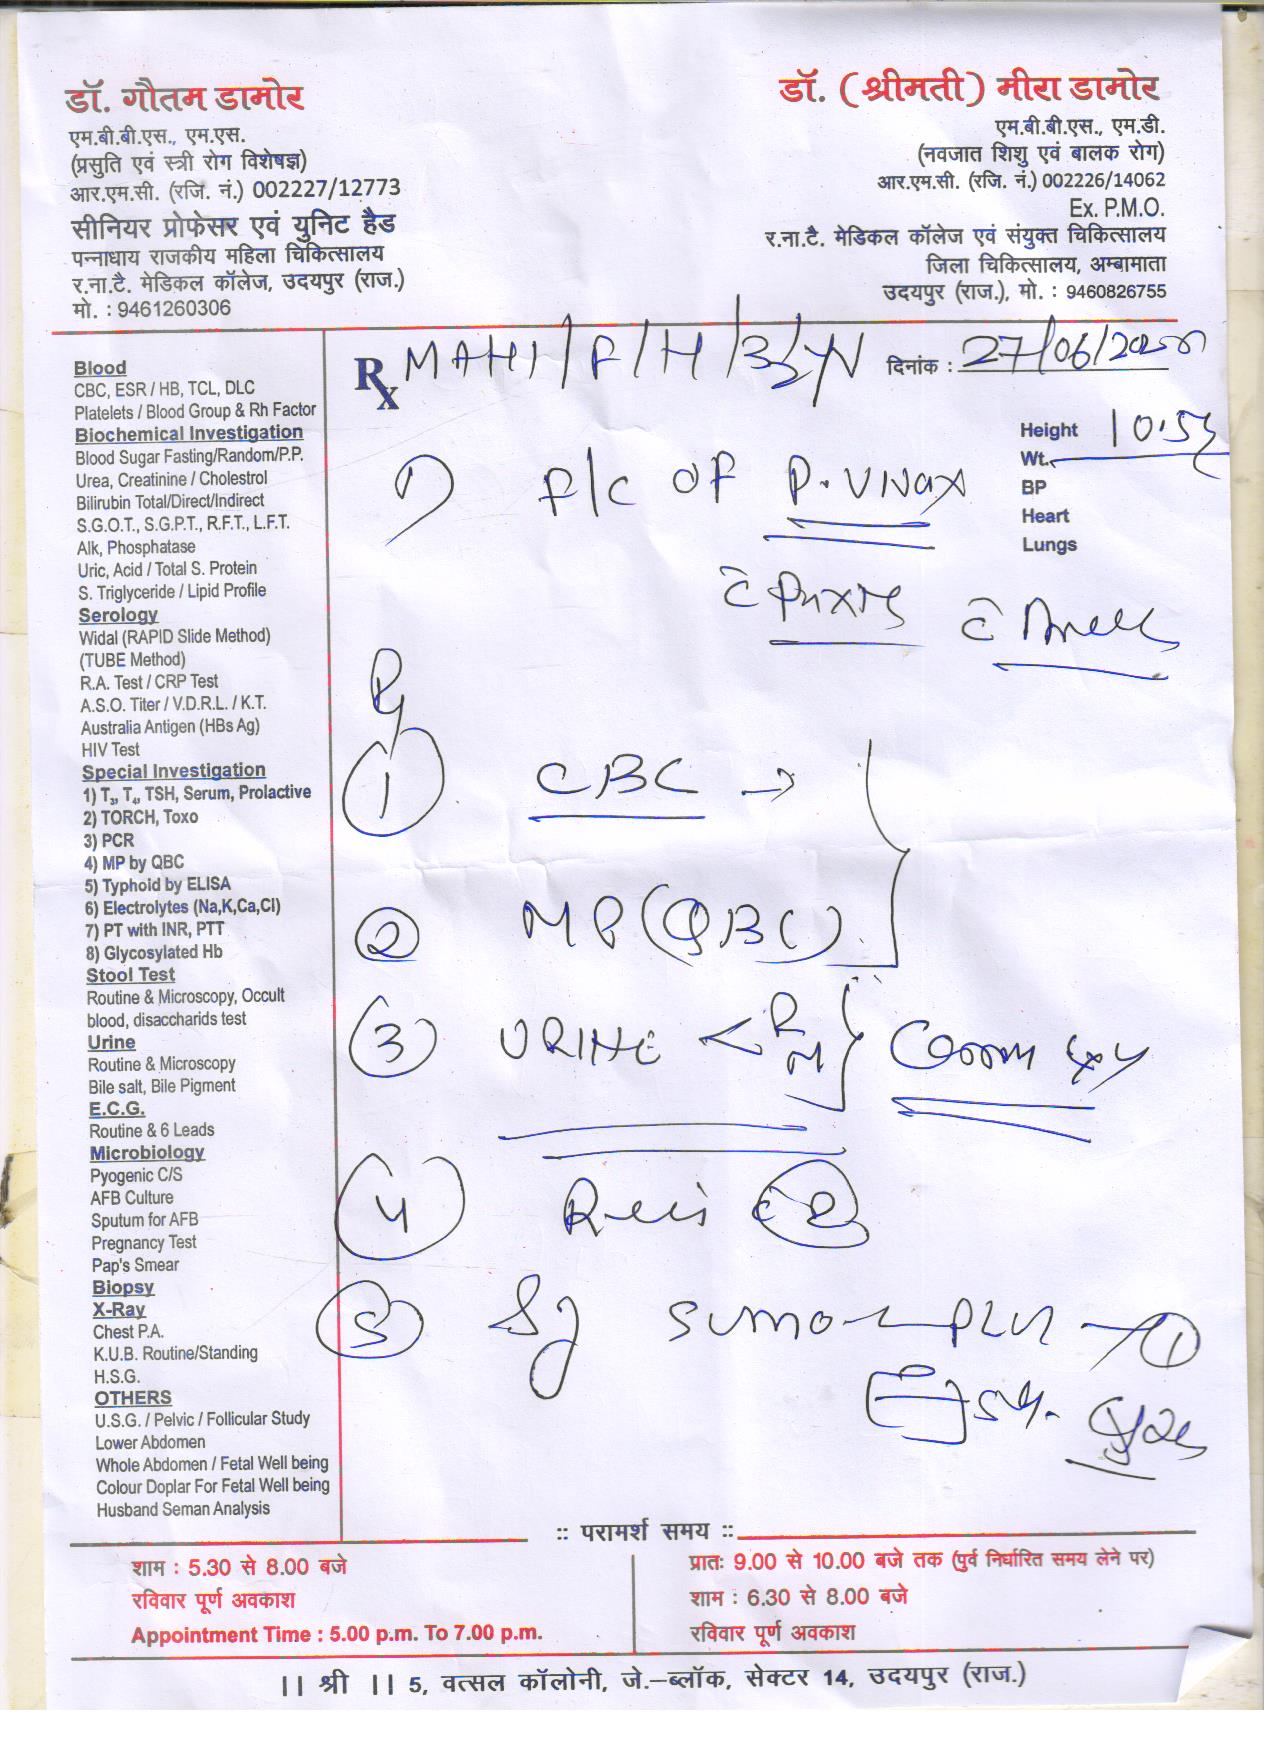 डॉ. गौतम डामोर
एम.बी.बी.एस., एम.एस.
(प्रसुति एवं स्त्री रोग विशेषज्ञ)
आर.एम.सी. (रजि. नं.) 002227/12773
सीनियर प्रोफेसर एवं युनिट हैड
पन्नाधाय राजकीय महिला चिकित्सालय
र.ना.टै. मेडिकल कॉलेज, उदयपुर (राज.)
मो. : 9461260306
डॉ. (श्रीमती) मीरा डामोर
एम.बी.बी.एस., एम.डी.
(नवजात शिशु एवं बालक रोग)
आर.एम.सी. (रजि. नं.) 002226/14062
Ex. P.M.O.
र.ना.टै. मेडिकल कॉलेज एवं संयुक्त चिकित्सालय
जिला चिकित्सालय, अम्बामाता
उदयपुर (राज.), मो. : 9460826755
Blood
CBC, ESR / HB, TCL, DLC
Platelets / Blood Group & Rh Factor
Biochemical Investigation
Blood Sugar Fasting/Random/P.P.
Urea, Creatinine / Cholestrol
Bilirubin Total/Direct/Indirect
S.G.O.T., S.G.P.T., R.F.T., L.F.T.
Alk, Phosphatase
Uric, Acid / Total S. Protein
S. Triglyceride / Lipid Profile
Serology
Widal (RAPID Slide Method)
(TUBE Method)
R.A. Test / CRP Test
A.S.O. Titer / V.D.R.L. / K.T.
Australia Antigen (HBs Ag)
HIV Test
Special Investigation
1) T3, T4, TSH, Serum, Prolactive
2) TORCH, Toxo
3) PCR
4) MP by QBC
5) Typhoid by ELISA
6) Electrolytes (Na,K,Ca,Cl)
7) PT with INR, PTT
8) Glycosylated Hb
Stool Test
Routine & Microscopy, Occult
blood, disaccharids test
Urine
Routine & Microscopy
Bile salt, Bile Pigment
E.C.G.
Routine & 6 Leads
Microbiology
Pyogenic C/S
AFB Culture
Sputum for AFB
Pregnancy Test
Pap's Smear
Biopsy
X-Ray
Chest P.A.
K.U.B. Routine/Standing
H.S.G.
OTHERS
U.S.G. / Pelvic / Follicular Study
Lower Abdomen
Whole Abdomen / Fetal Well being
Colour Doplar For Fetal Well being
Husband Seman Analysis
Rx MAHI/F/H/3
दिनांक : 27/06/
Height 10.5
Wt.
BP
Heart
Lungs
1) F/C OF P. VIVAX
1 CBC →
2 MP (QBC)
3 URINE < R
M
4 c 2
5 Sy SUMO
:: परामर्श समय ::
शाम : 5.30 से 8.00 बजे
रविवार पूर्ण अवकाश
Appointment Time : 5.00 p.m. To 7.00 p.m.
प्रातः 9.00 से 10.00 बजे तक (पुर्व निर्धारित समय लेने पर)
शाम : 6.30 से 8.00 बजे
रविवार पूर्ण अवकाश
|| श्री || 5, वत्सल कॉलोनी, जे.–ब्लॉक, सेक्टर 14, उदयपुर (राज.)